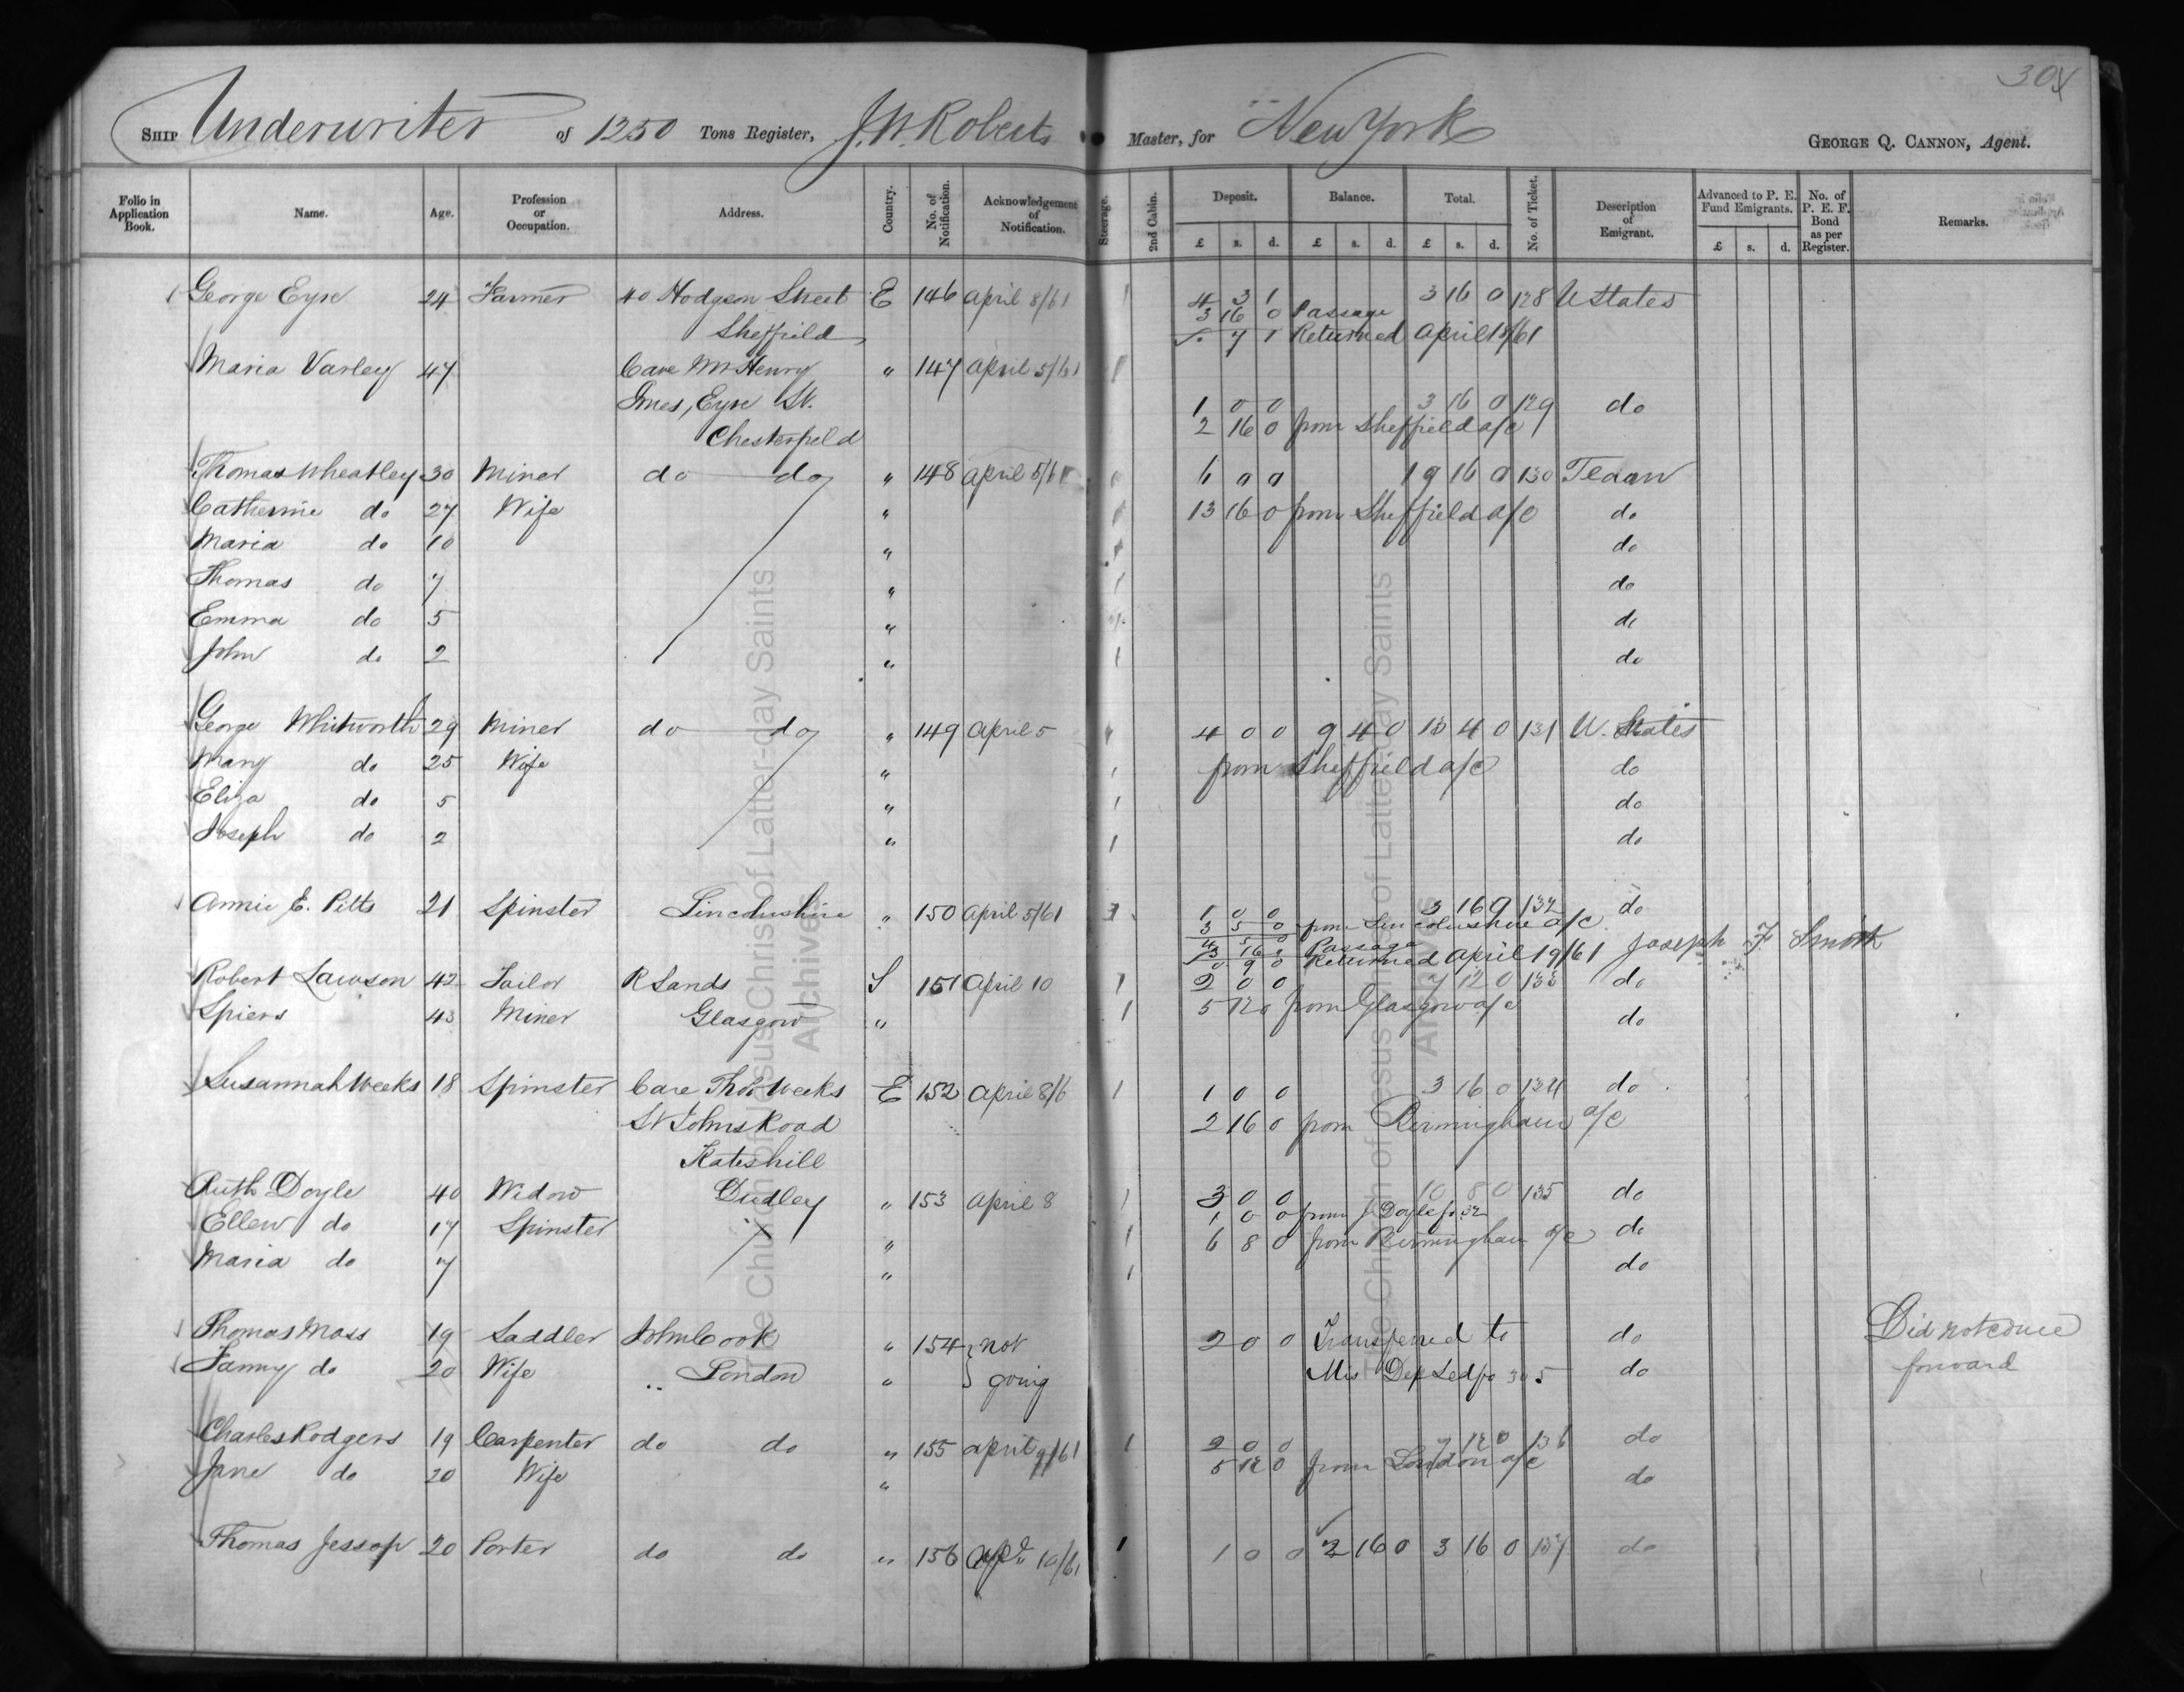 304
SHIP Underwriter of 1250 Tons Register, J.W. Roberts Master, for New York GEORGE Q. CANNON, Agent.
Folio in Application Book. Name. Age. Profession or Occupation. Address. Country. No. of Notification. Acknowledgement of Notification. Steerage. 2nd Cabin. Deposit. Balance. Total. No. of Ticket. Description of Emigrant. Advanced to P. E. Fund Emigrants. No. of P. E. F. Bond as per Register. Remarks.
£ s. d. £ s. d. £ s. d. £ s. d.
George Eyre 24 Farmer 40 Hodgson Street E 146 April 8/61 1 4 3 1 3 16 0 128 U States
3 16 0 Passage
Sheffield 7 1 Returned April 19/61
Maria Varley 47 Care Mr Henry " 147 April 5/61 1
Eyre St. 1 0 0 3 16 0 129 do
Chesterfield 2 16 0 from Sheffield a/c
Thomas Wheatley 30 Miner do do " 148 April 5/61 6 0 0 19 16 0 130
Catherine do 27 Wife " 13 16 0 from Sheffield a/c do
Maria do 10 " do
Thomas do 7 " 1 do
Emma do 5 " do
John do 2 " 1 do
George Whitworth 29 Miner do do " 149 April 5 1 4 0 0 9 4 0 13 4 0 131 U. States
Mary do 25 Wife " 1 from Sheffield a/c do
Eliza do 5 " 1 do
Joseph do 2 " 1 do
Annie E. Pitts 21 Spinster Lincolnshire " 150 April 5/61 1 1 0 0 3 16 0 132 do
3 5 0 from Lincolnshire a/c
4 5 0
3 16 0 Passage
0 9 0 Returned April 19/61 Joseph F Smith
Robert Lawson 42 Tailor R Sands S 151 April 10 1 2 0 0 7 12 0 133 do
Spiers 43 Miner Glasgow " 1 5 12 0 from Glasgow a/c do
Susannah Weeks 18 Spinster Care Thos Weeks E 152 April 8/6 1 1 0 0 3 16 0 134 do
St Johns Road 2 16 0 from Birmingham a/c
Kateshill
Ruth Doyle 40 Widow Dudley " 153 April 8 1 3 0 0 10 8 0 135 do
1 0 0 from J Doyle fo 32
Ellen do 17 Spinster " 1 6 8 0 from Birmingham a/c do
Maria do 7 " 1 do
Thomas Moss 19 Saddler John Cook " 154 } not 2 0 0 Transferred to do Did not come
Fanny do 20 Wife " London " } going Mis Dep Led fo 305 do forward
Charles Rodgers 19 Carpenter do do " 155 April 9/61 1 2 0 0 7 12 0 136 do
Jane do 20 Wife " 5 12 0 from London a/c do
Thomas Jessop 20 Porter do do " 156 Apl 10/61 1 1 0 0 2 16 0 3 16 0 137 do
The Church of Jesus Christ of Latter-day Saints
Archives
The Church of Jesus Christ of Latter-day Saints
Archives